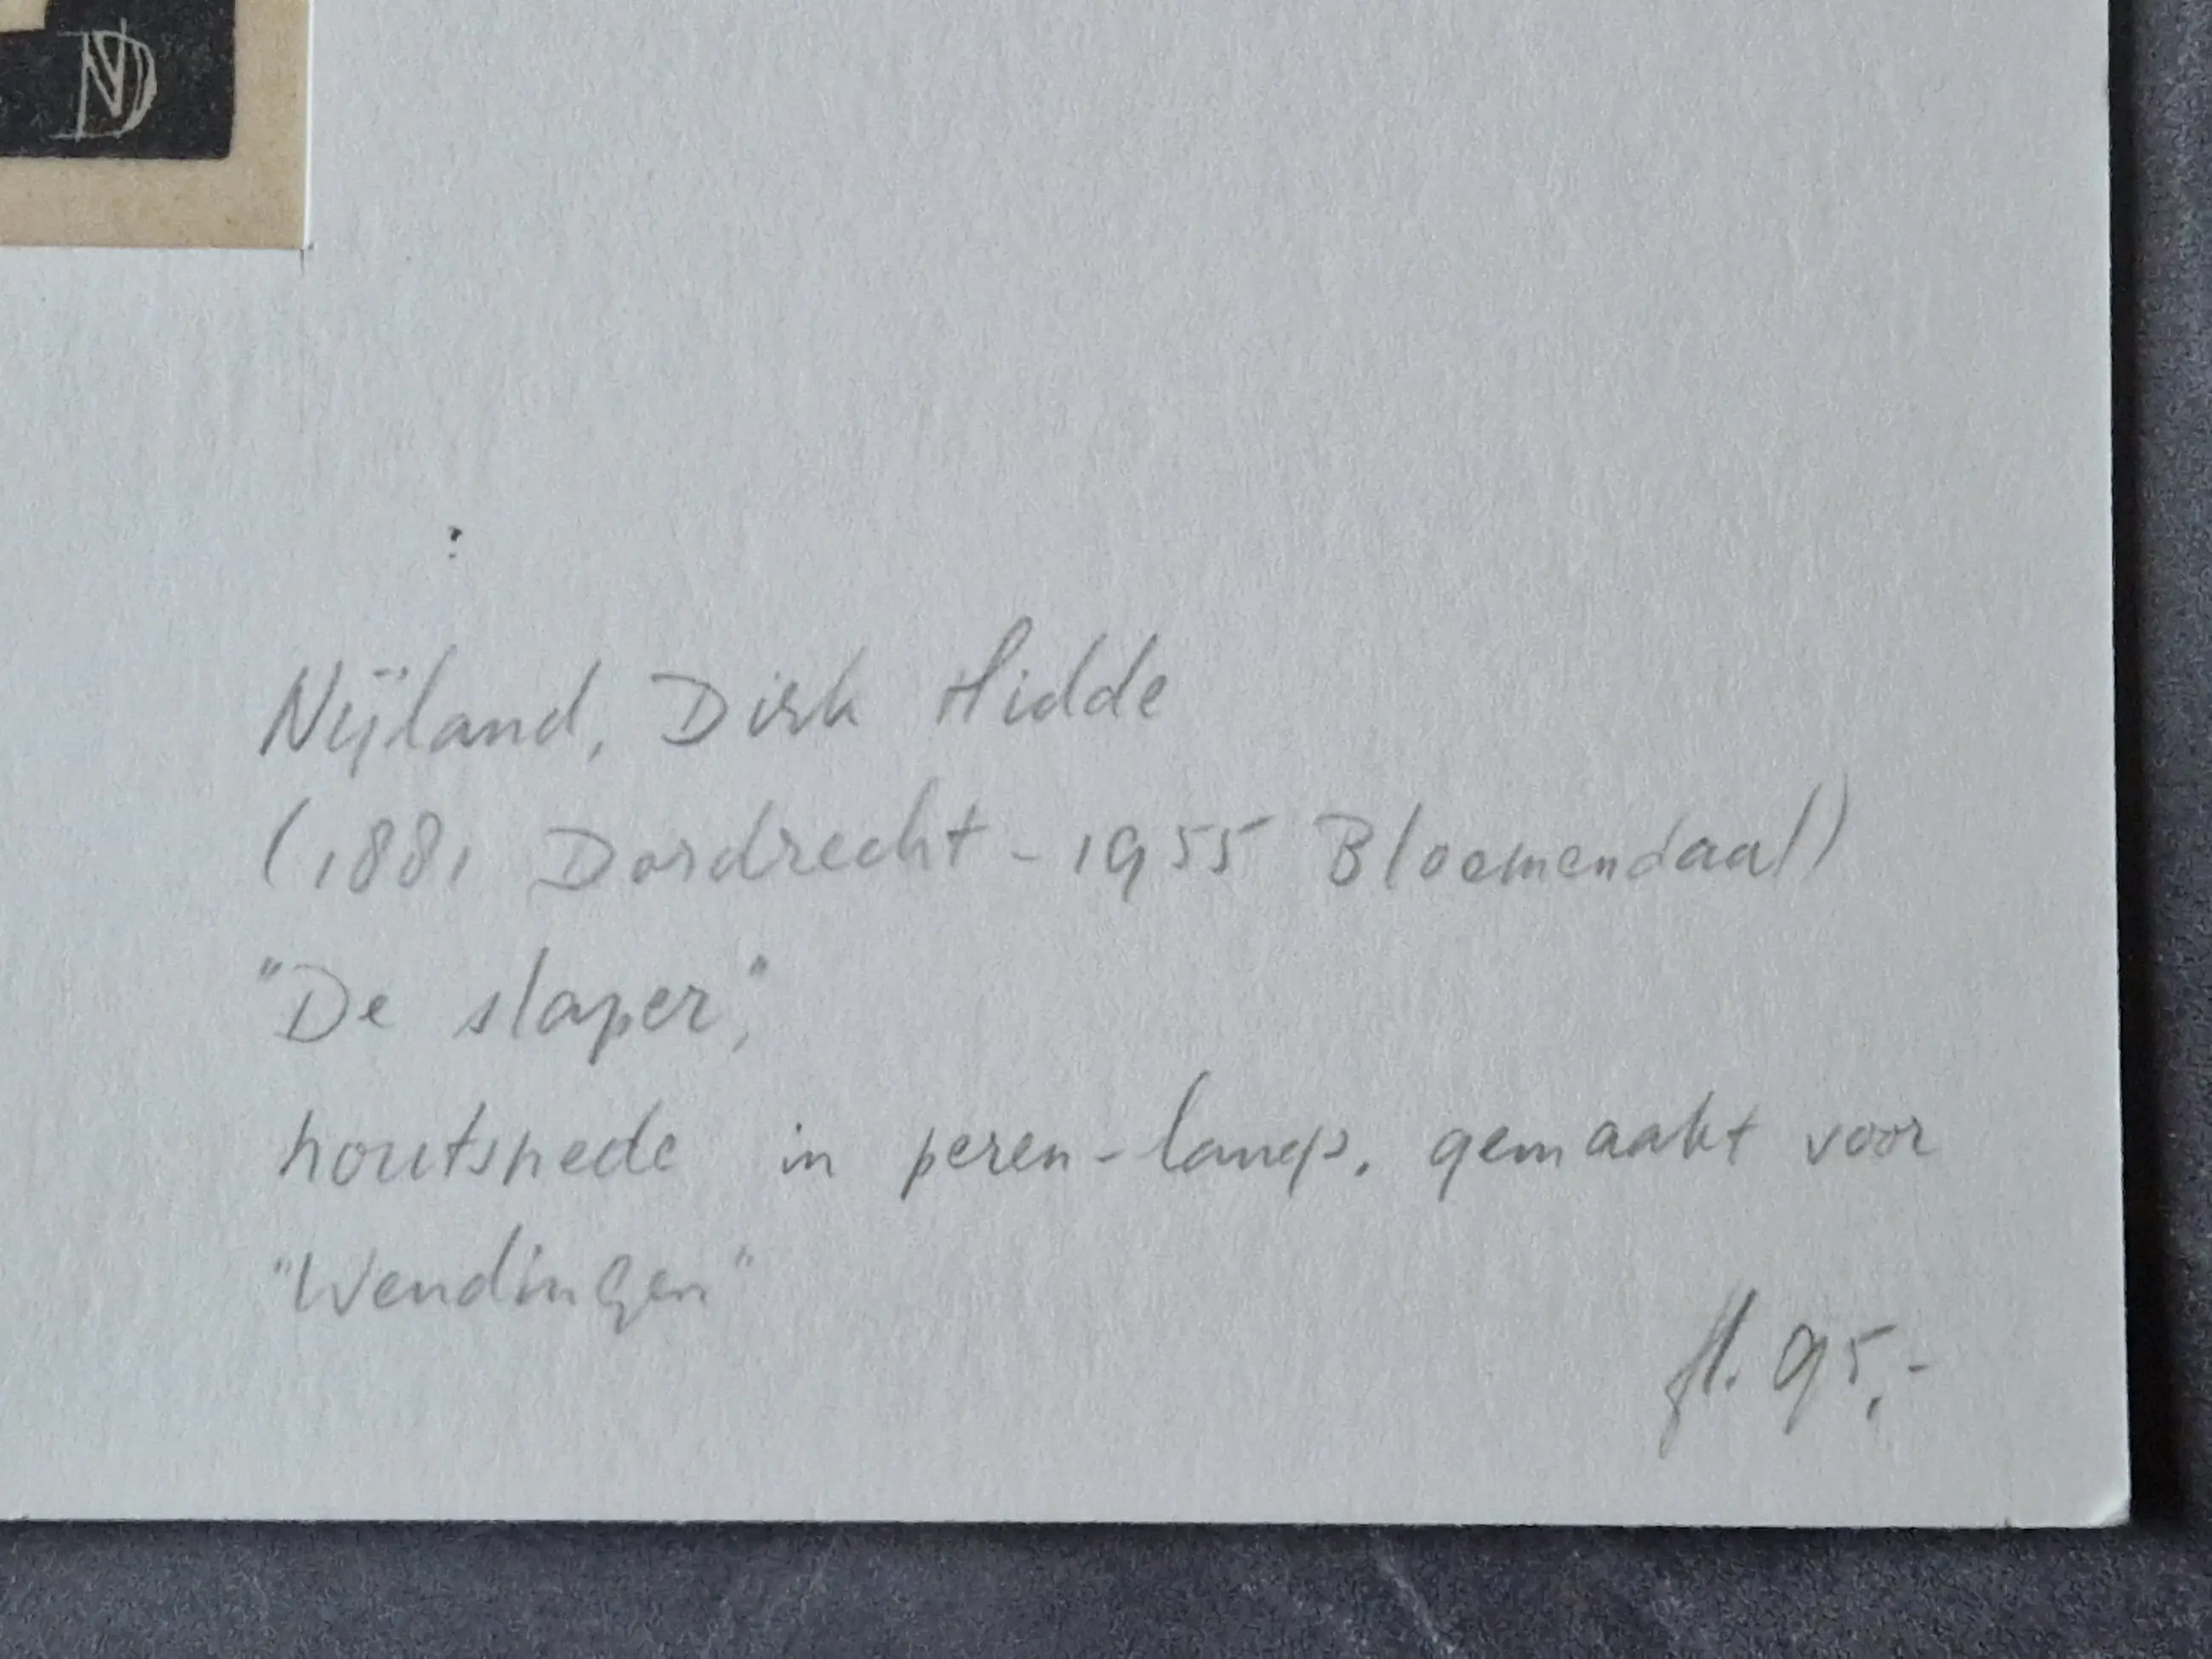 ND
Nijland, Dirk Hidde
(1881 Dordrecht - 1955 Bloemendaal)
"De slaper,"
houtsnede in peren-langs. gemaakt voor
"Wendingen"
fl. 95,-